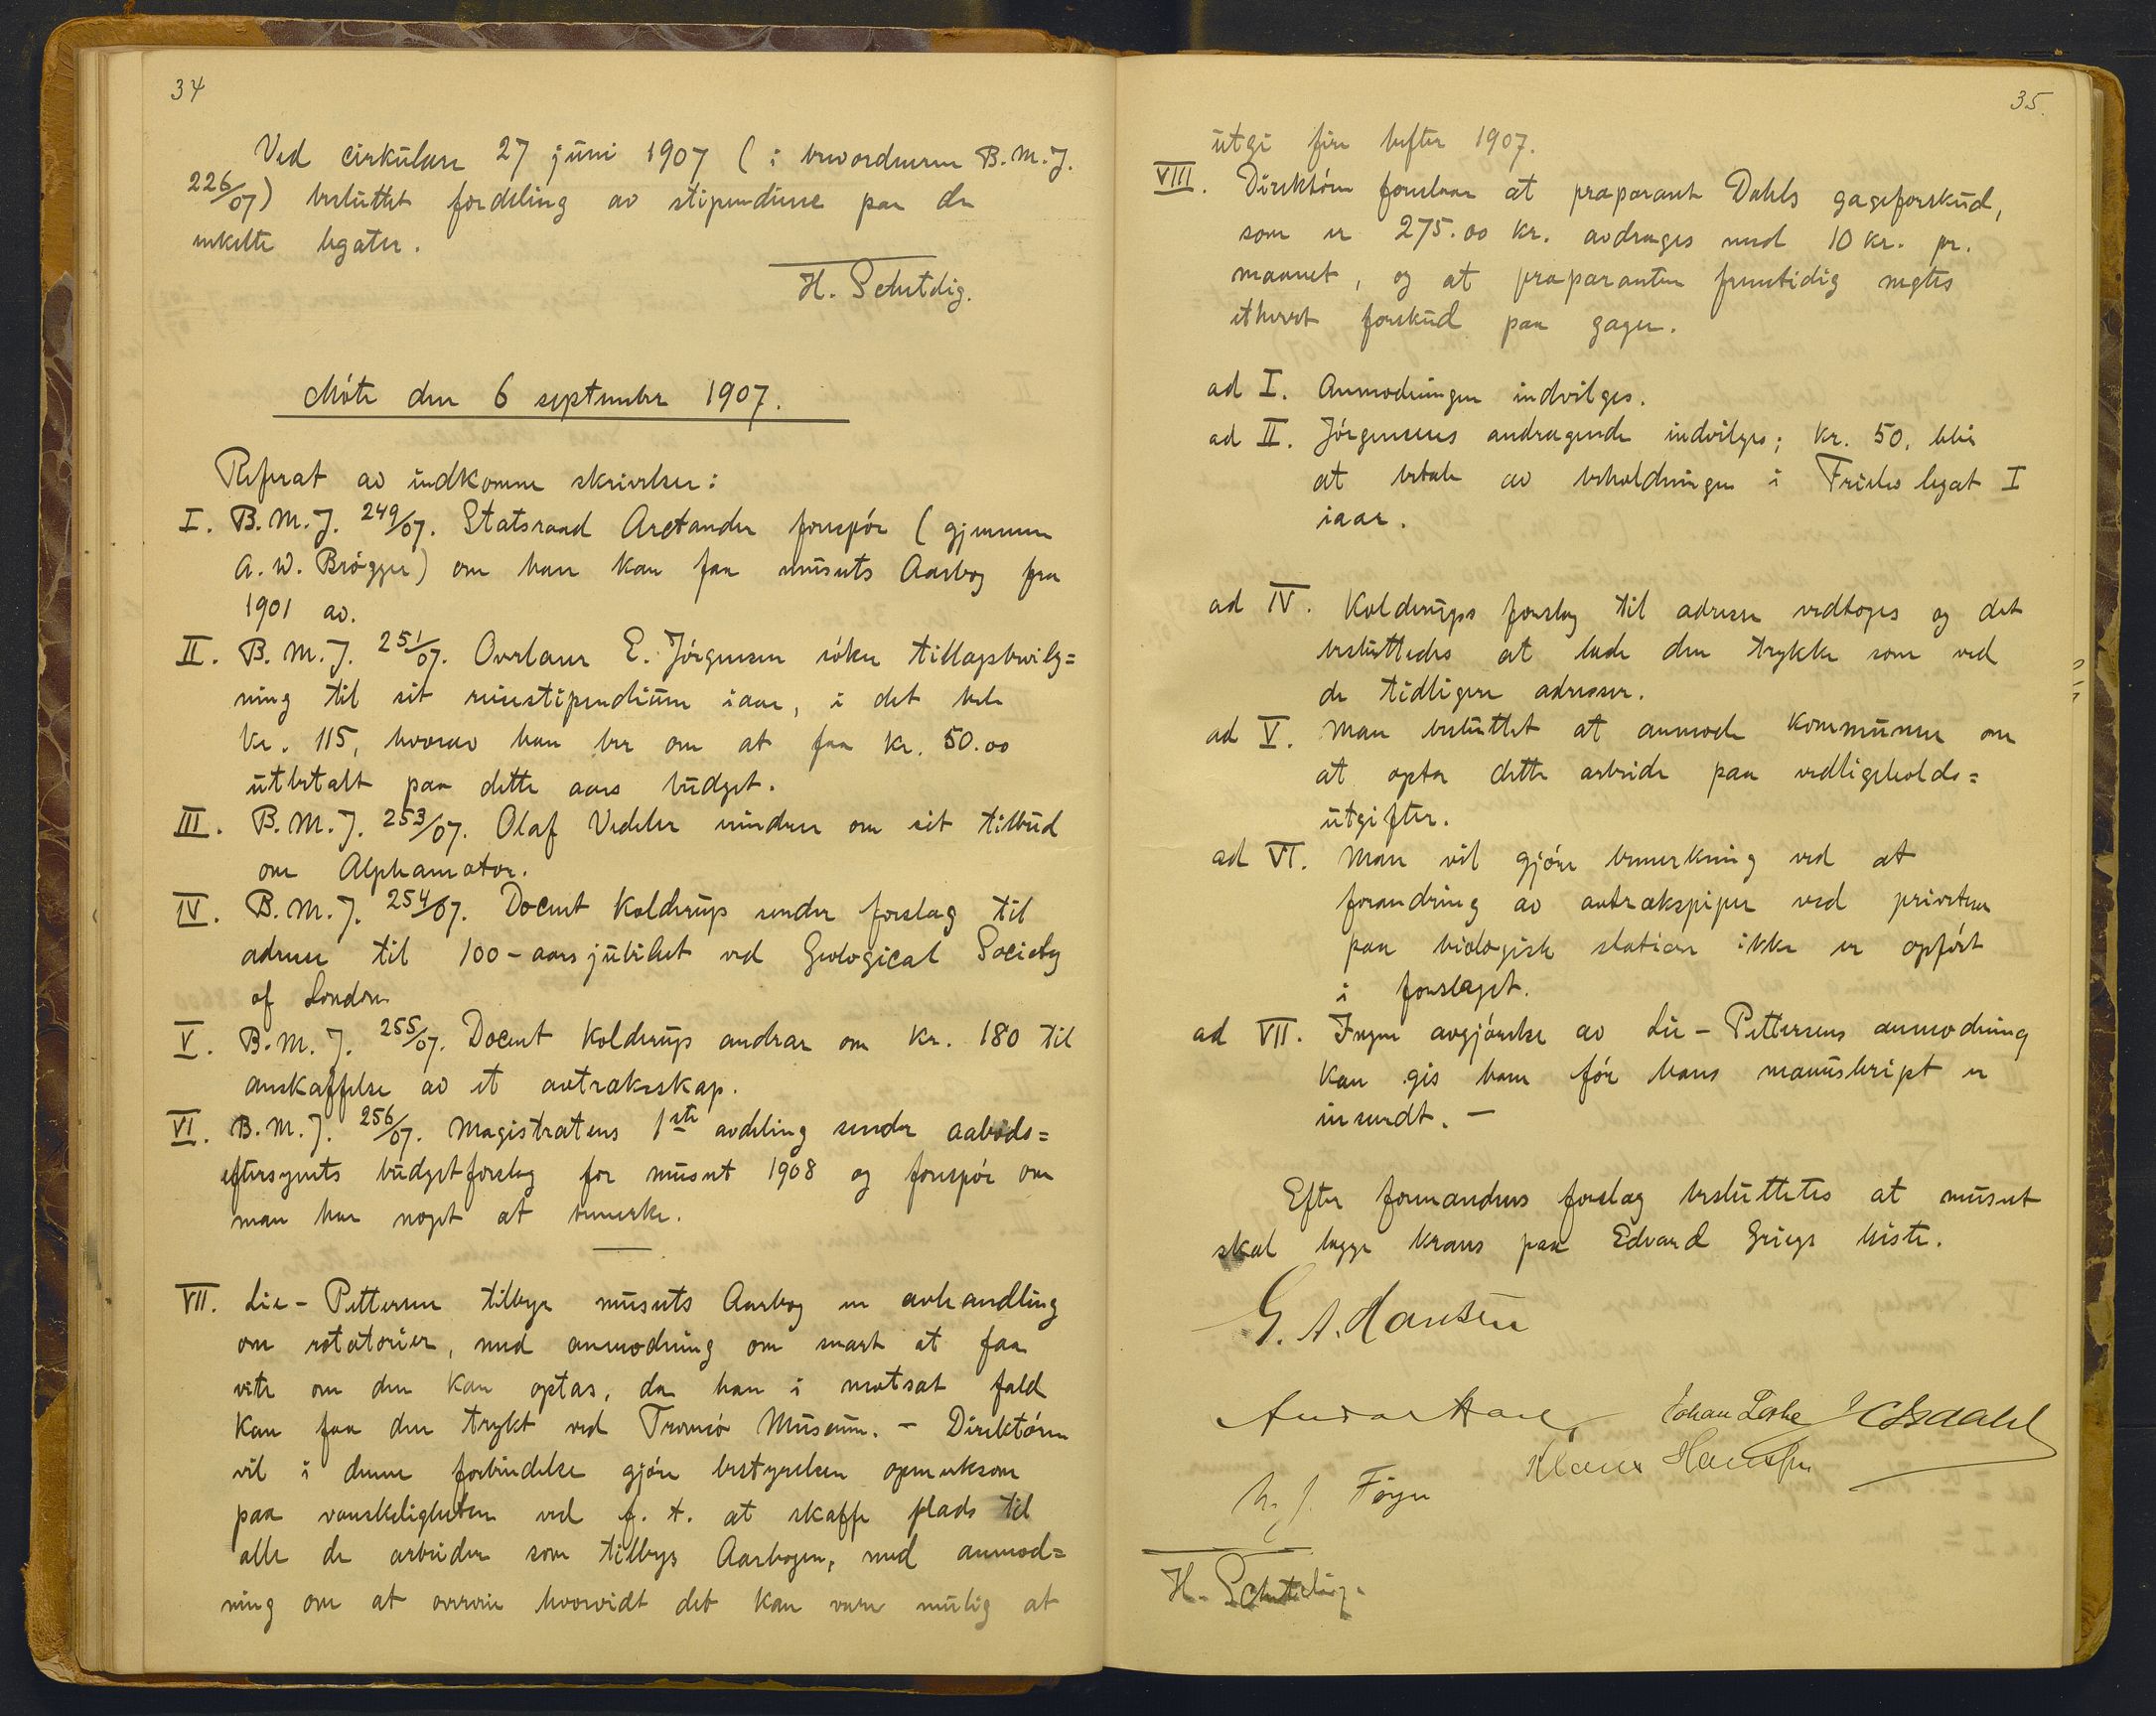 34
Ved cirkulære 27 juni 1907 (i brevordneren B. M. J.
226/07) besluttet fordeling av stipendiene paa de
enkelte legater.
H. Schetelig.
Møte den 6 september 1907.
Referat av indkomne skrivelser:
I. B. M. J. 249/07. Statsraad Arctander forespør (gjennem
A. W. Brøgger) om han kan faa museets Aarbog fra
1901 av.
II. B. M. J. 251/07. Overlærer E. Jørgensen søker tillægsbevilg=
ning til sit reisestipendium iaar, i det hele
kr. 115, hvorav han ber om at faa kr. 50.00
utbetalt paa dette aars budget.
III. B. M. J. 253/07. Olaf Vedeler minder om sit tilbud
om Alphamotor.
IV. B. M. J. 254/07. Docent Kolderup sender forslag til
adresse til 100-aarsjubilæet ved Geological Society
of London.
V. B. M. J. 255/07. Docent Kolderup andrar om kr. 180 til
anskaffelse av et avtræksskap.
VI. B. M. J. 256/07. Magistratens 1ste avdeling sender aabods=
eftersynets budgetforslag for museet 1908 og forespør om
man har noget at bemerke.
VII. Lie-Pettersen tilbyr museets Aarbog en avhandling
om rotatorier, med anmodning om snart at faa
vite om den kan optas, da han i motsat fald
kan faa den trykt ved Tromsø Museum. - Direktøren
vil i denne forbindelse gjøre bestyrelsen opmerksom
paa vanskeligheten ved f. t. at skaffe plads til
alle de arbeider som tilbys Aarbogen, med anmod=
ning om at overveie hvorvidt det kan være mulig at
35.
utgi fire hefter 1907.
VIII. Direktøren foreslaar at præparant Dahls gageforskud,
som er 275.00 kr. avdrages med 10 kr. pr.
maanet, og at præparanten fremtidig negtes
ethvert forskud paa gagen.
ad I. Anmodningen indvilges.
ad II. Jørgensens andragende indvilges; kr. 50. blir
at betale av beholdningen i Frieles legat I
iaar.
ad IV. Kolderups forslag til adresse vedtoges og det
besluttedes at lade den trykke som ved
de tidligere adresser.
ad V. Man besluttet at anmode kommunen om
at opta dette arbeide paa vedligeholds=
utgifter.
ad VI. Man vil gjøre bemerkning ved at
forandring av avtrækspiper ved priveterne
paa biologisk station ikke er opført
i forslaget.
ad VII. Ingen avgjørelse av Lie-Pettersens anmodning
kan gis ham før hans manuskript er
insendt. -
Efter formandens forslag besluttetes at museet
skal lægge krans paa Edvard Griegs kiste.
G. A. Hansen
Johan Lothe J C Isdahl
Klaus Hanssen
N. J. Føyn
H. Schetelig.